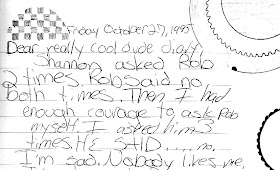 Friday October 27, 1995
Dear really cool dude diary,
Shannon asked Rob
2 times. Rob said no
both times. Then I had
enough courage to ask Rob
myself. I asked him 3
times. HE SAID.....no.
I'm sad. Nobody likes me,